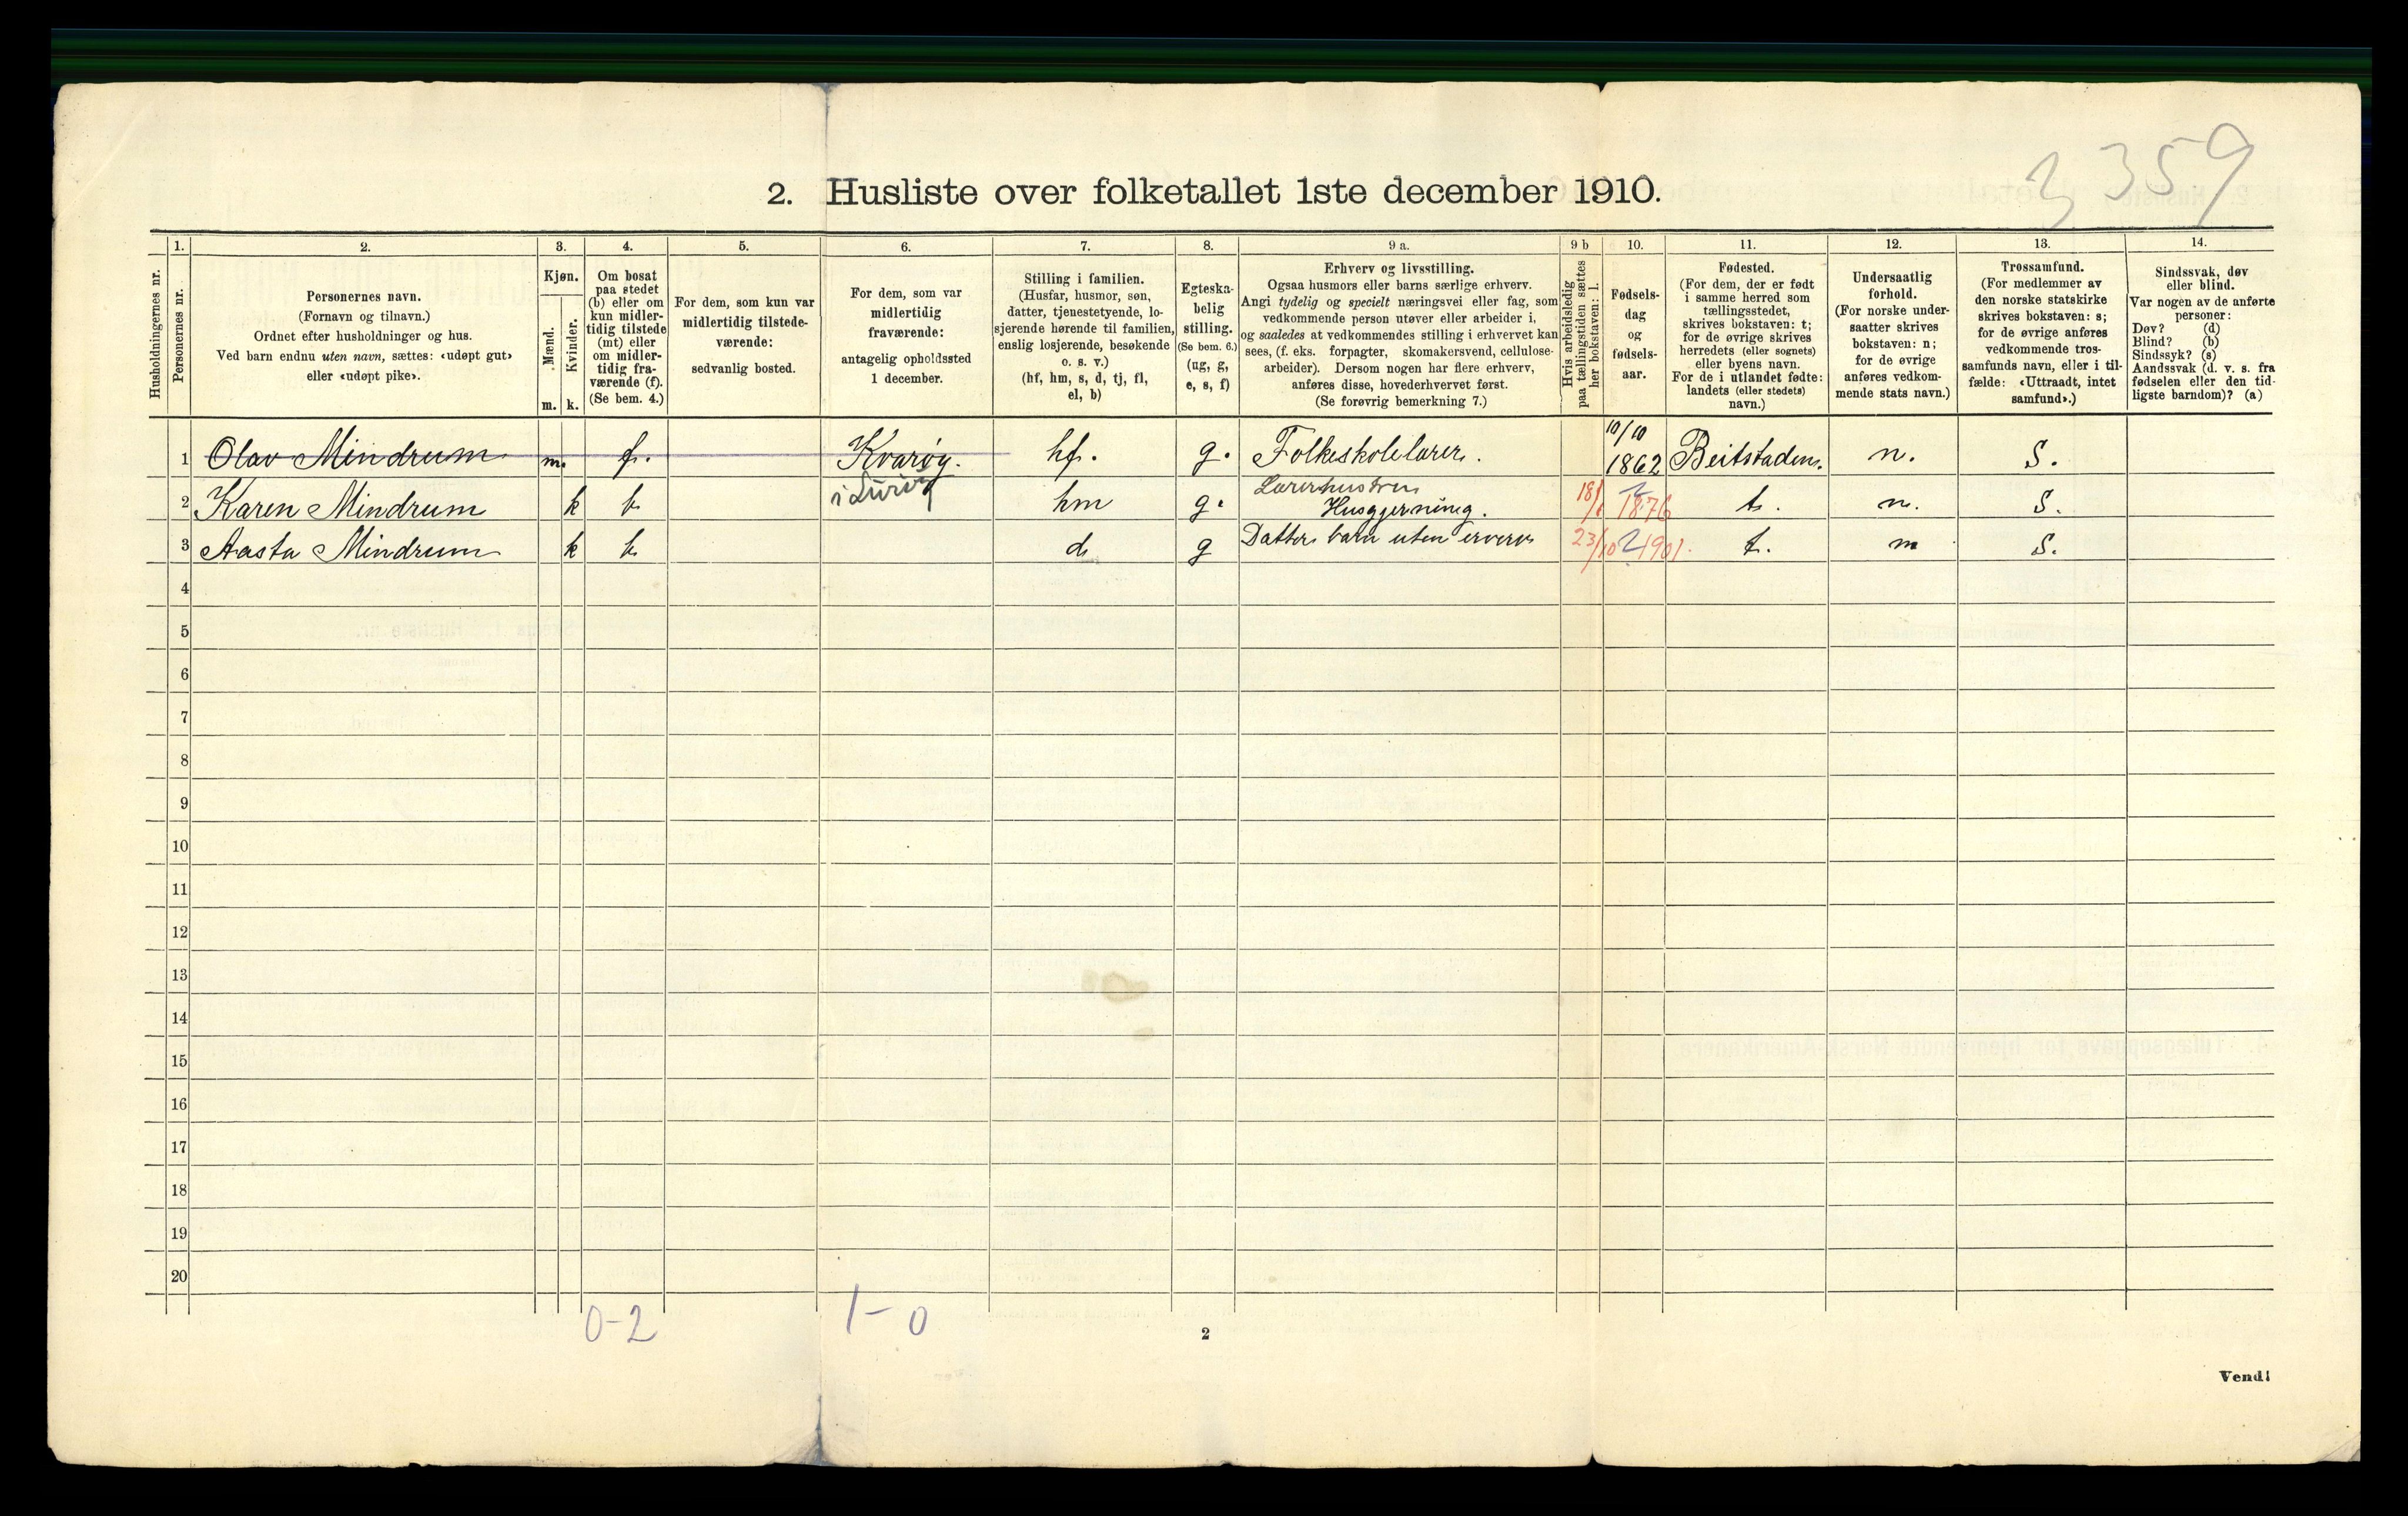 3 359
2. Husliste over folketallet 1ste december 1910.
Husholdningernes nr.
1.
Personernes nr.
2.
Personernes navn.
(Fornavn og tilnavn.)
Ordnet efter husholdninger og hus.
Ved barn endnu uten navn, sættes: «udøpt gut»
eller «udøpt pike».
3.
Kjøn.
Mænd.
Kvinder.
m.
k.
4.
Om bosat
paa stedet
(b) eller om
kun midler-
tidig tilstede
(mt) eller
om midler-
tidig fra-
værende (f).
(Se bem. 4.)
5.
For dem, som kun var
midlertidig tilstede-
værende:
sedvanlig bosted.
6.
For dem, som var
midlertidig
fraværende:
antagelig opholdssted
1 december.
7.
Stilling i familien.
(Husfar, husmor, søn,
datter, tjenestetyende, lo-
sjerende hørende til familien,
enslig losjerende, besøkende
o. s. v.)
(hf, hm, s, d, tj, fl,
el, b)
8.
Egteska-
belig
stilling.
(Se bem. 6.)
(ug, g,
e, s, f)
9 a.
Erhverv og livsstilling.
Ogsaa husmors eller barns særlige erhverv.
Angi tydelig og specielt næringsvei eller fag, som
vedkommende person utøver eller arbeider i,
og saaledes at vedkommendes stilling i erhvervet kan
sees, (f. eks. forpagter, skomakersvend, cellulose-
arbeider). Dersom nogen har flere erhverv,
anføres disse, hovederhvervet først.
(Se forøvrig bemerkning 7.)
9 b
Hvis arbeidsledig
paa tællingstiden sættes
her bokstaven: l.
10.
Fødsels-
dag
og
fødsels-
aar.
11.
Fødested.
(For dem, der er født
i samme herred som
tællingsstedet,
skrives bokstaven: t;
for de øvrige skrives
herredets (eller sognets)
eller byens navn.
For de i utlandet fødte:
landets (eller stedets)
navn.)
12.
Undersaatlig
forhold.
(For norske under-
saatter skrives
bokstaven: n;
for de øvrige
anføres vedkom-
mende stats navn.)
13.
Trossamfund.
(For medlemmer av
den norske statskirke
skrives bokstaven: s;
for de øvrige anføres
vedkommende tros-
samfunds navn, eller i til-
fælde: «Uttraadt, intet
samfund».)
14.
Sindssvak, døv
eller blind.
Var nogen av de anførte
personer:
Døv? (d)
Blind? (b)
Sindssyk? (s)
Aandssvak (d. v. s. fra
fødselen eller den tid-
ligste barndom)? (a)
1 Olav Mindrum m. f. Kvarøy. hf. g. Folkeskolelærer. 10/10 1862 Beitstaden. n. S.
i Lurøy
2 Karen Mindrum k b hm g. Lærerhustru Husgjerning. 18/1 1876 t. n. S.
3 Aasta Mindrum k b d g Datter barn uten erverv 23/10 1901. t. n S.
4
5
6
7
8
9
10
11
12
13
14
15
16
17
18
19
20
0-2
1-0
2
Vend!